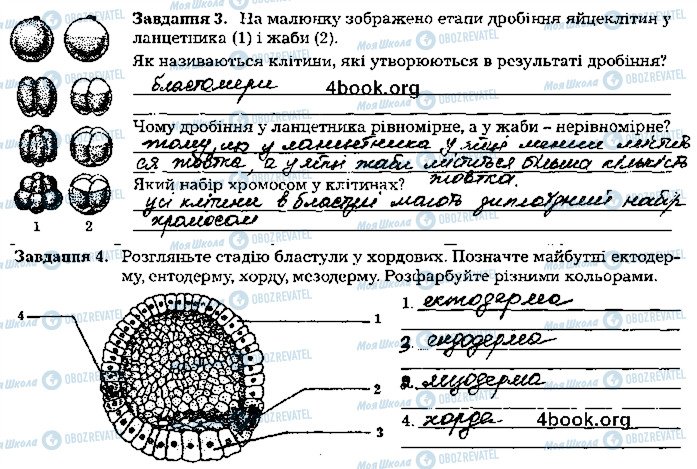 Завдання 3. На малюнку зображено етапи дробіння яйцеклітин у
ланцетника (1) і жаби (2).
Як називаються клітини, які утворюються в результаті дробіння?
бластомери 4book.org
Чому дробіння у ланцетника рівномірне, а у жаби – нерівномірне?
тому, що у ланцетника у яйці менше містить
ся жовтка, а у яйці жаби міститься більша кількість
Який набір хромосом у клітинах? жовтка.
усі клітини в бластулі мають диплоїдний набір
хромосом
1 2
Завдання 4. Розгляньте стадію бластули у хордових. Позначте майбутні ектодер-
му, ентодерму, хорду, мезодерму. Розфарбуйте різними кольорами.
1. ектодерма
4 1
3. ендодерма
2. мезодерма
2
4. хорда 4book.org
3